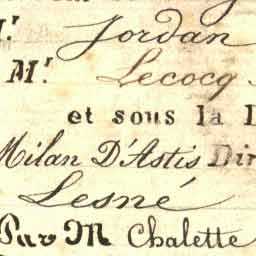 Mr. Jordan
Mr. Lecocq
et sous la
Milan D'Astis Dir
Lesné
Par M Chalette